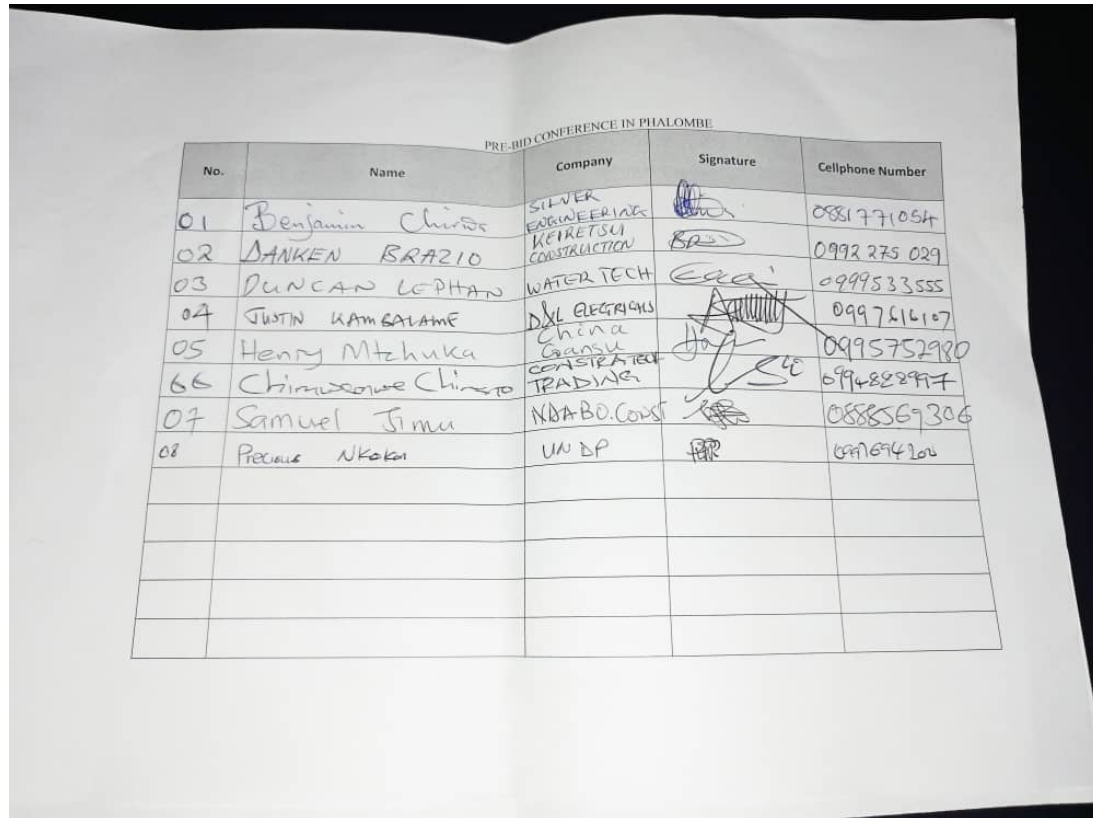 PRE-BID CONFERENCE IN PHALOMBE
No. Name Company Signature Cellphone Number
01 Benjamin SILVER ENGINEERING 0881771054
02 DANKEN BRAZIO KEIRETSU CONSTRUCTION 0992 275 029
03 DUNCAN LEPHAN WATER TECH 0999533555
04 JUSTIN KAMBALAME D&L ELECTRICALS 0997616107
05 Henry Mtchuka China Gansu 0995752980
66 TRADING 0994828997
07 Samuel Jimu NDABO.CONST 0888569306
08 Precious UNDP